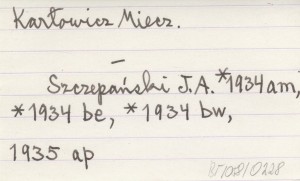 Karłowicz Miecz.
—
Szczepański J.A. *1934 am,
*1934 be, *1934 bw,
1935 ap